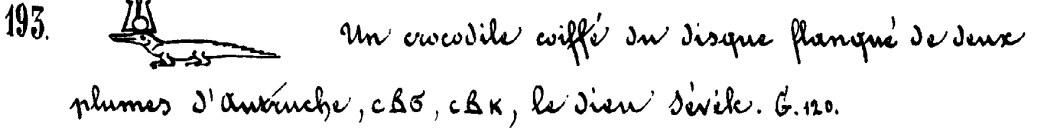 193. Un crocodile coiffé du disque flanqué de deux
plumes d'autruche, ⲥⲃϭ, ⲥⲃⲕ, le dieu Sévék. G. 120.